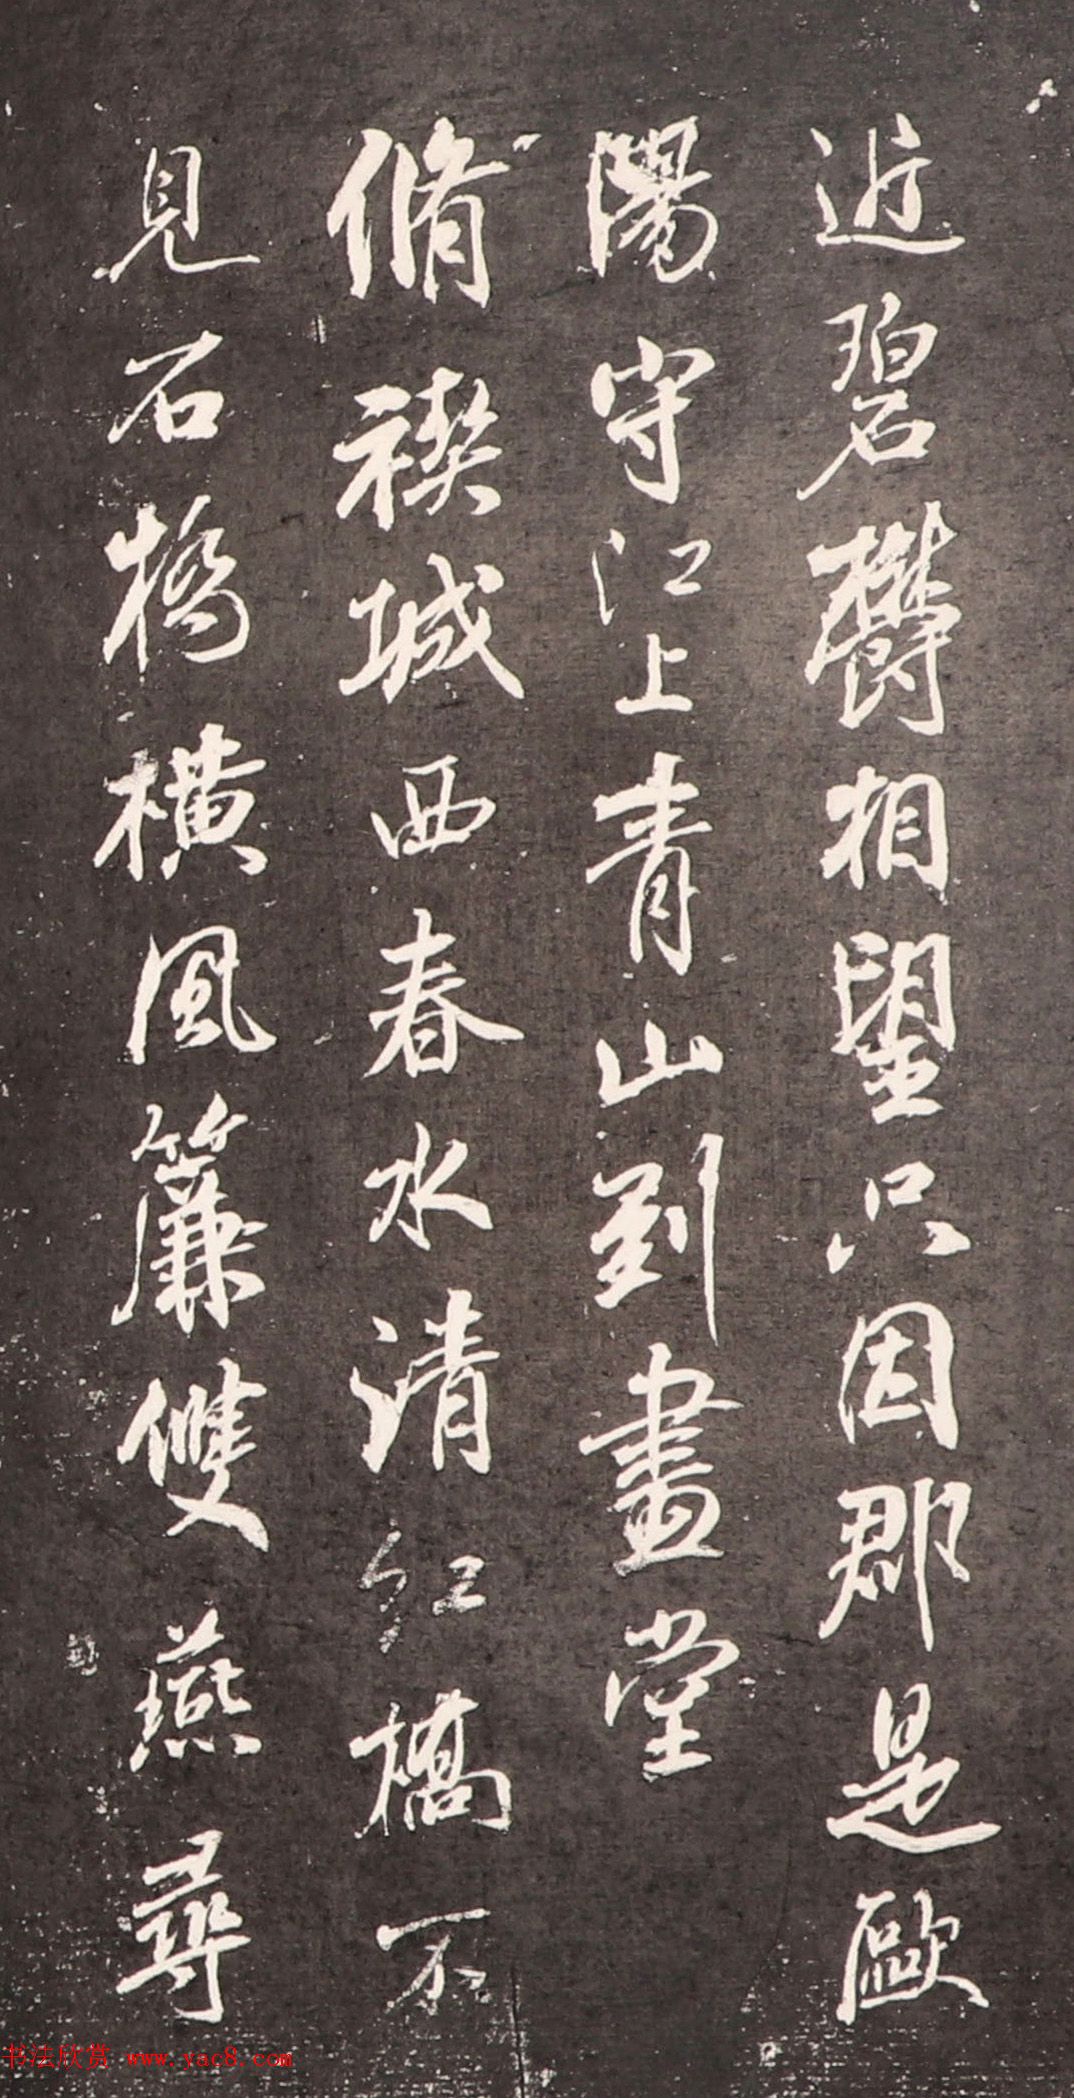 近碧欝相望只因郡是歐
陽守江上青山到畫堂
脩禊城西春水清紅橋不
見石橋橫風簾雙燕尋
书法欣赏 www.yac8.com